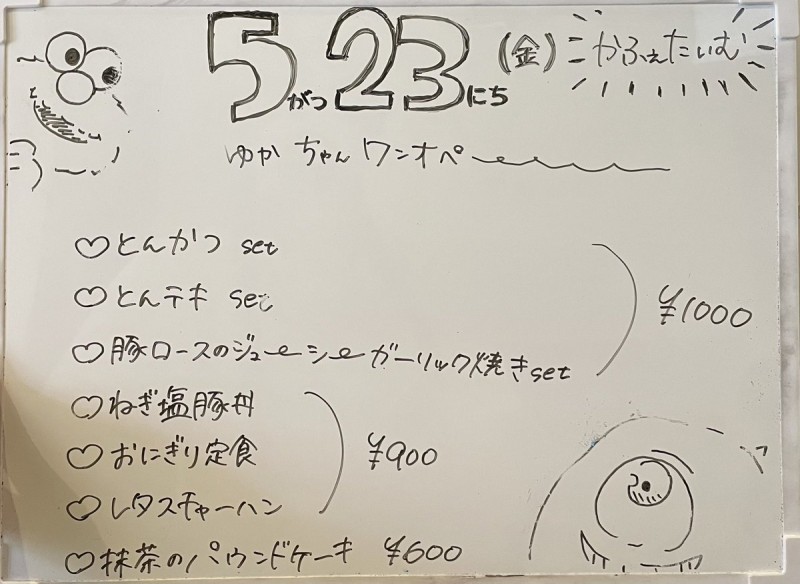 5がつ23にち (金) かふぇたいむ
ゆかちゃんワンオペ
♡とんかつ set
♡とんテキ set
♡豚ロースのジューシーガーリック焼きset
¥1000
♡ねぎ塩豚丼
♡おにぎり定食
♡レタスチャーハン
¥900
♡抹茶のパウンドケーキ ¥600